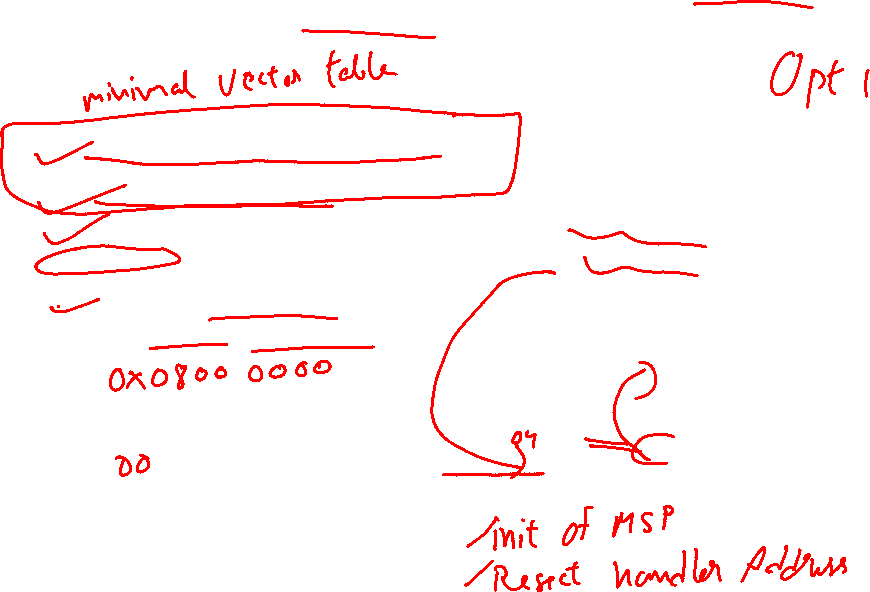 minimal vector table
Opt 1
0x0800 0000
00
04
init of MSP
Reset handler Address